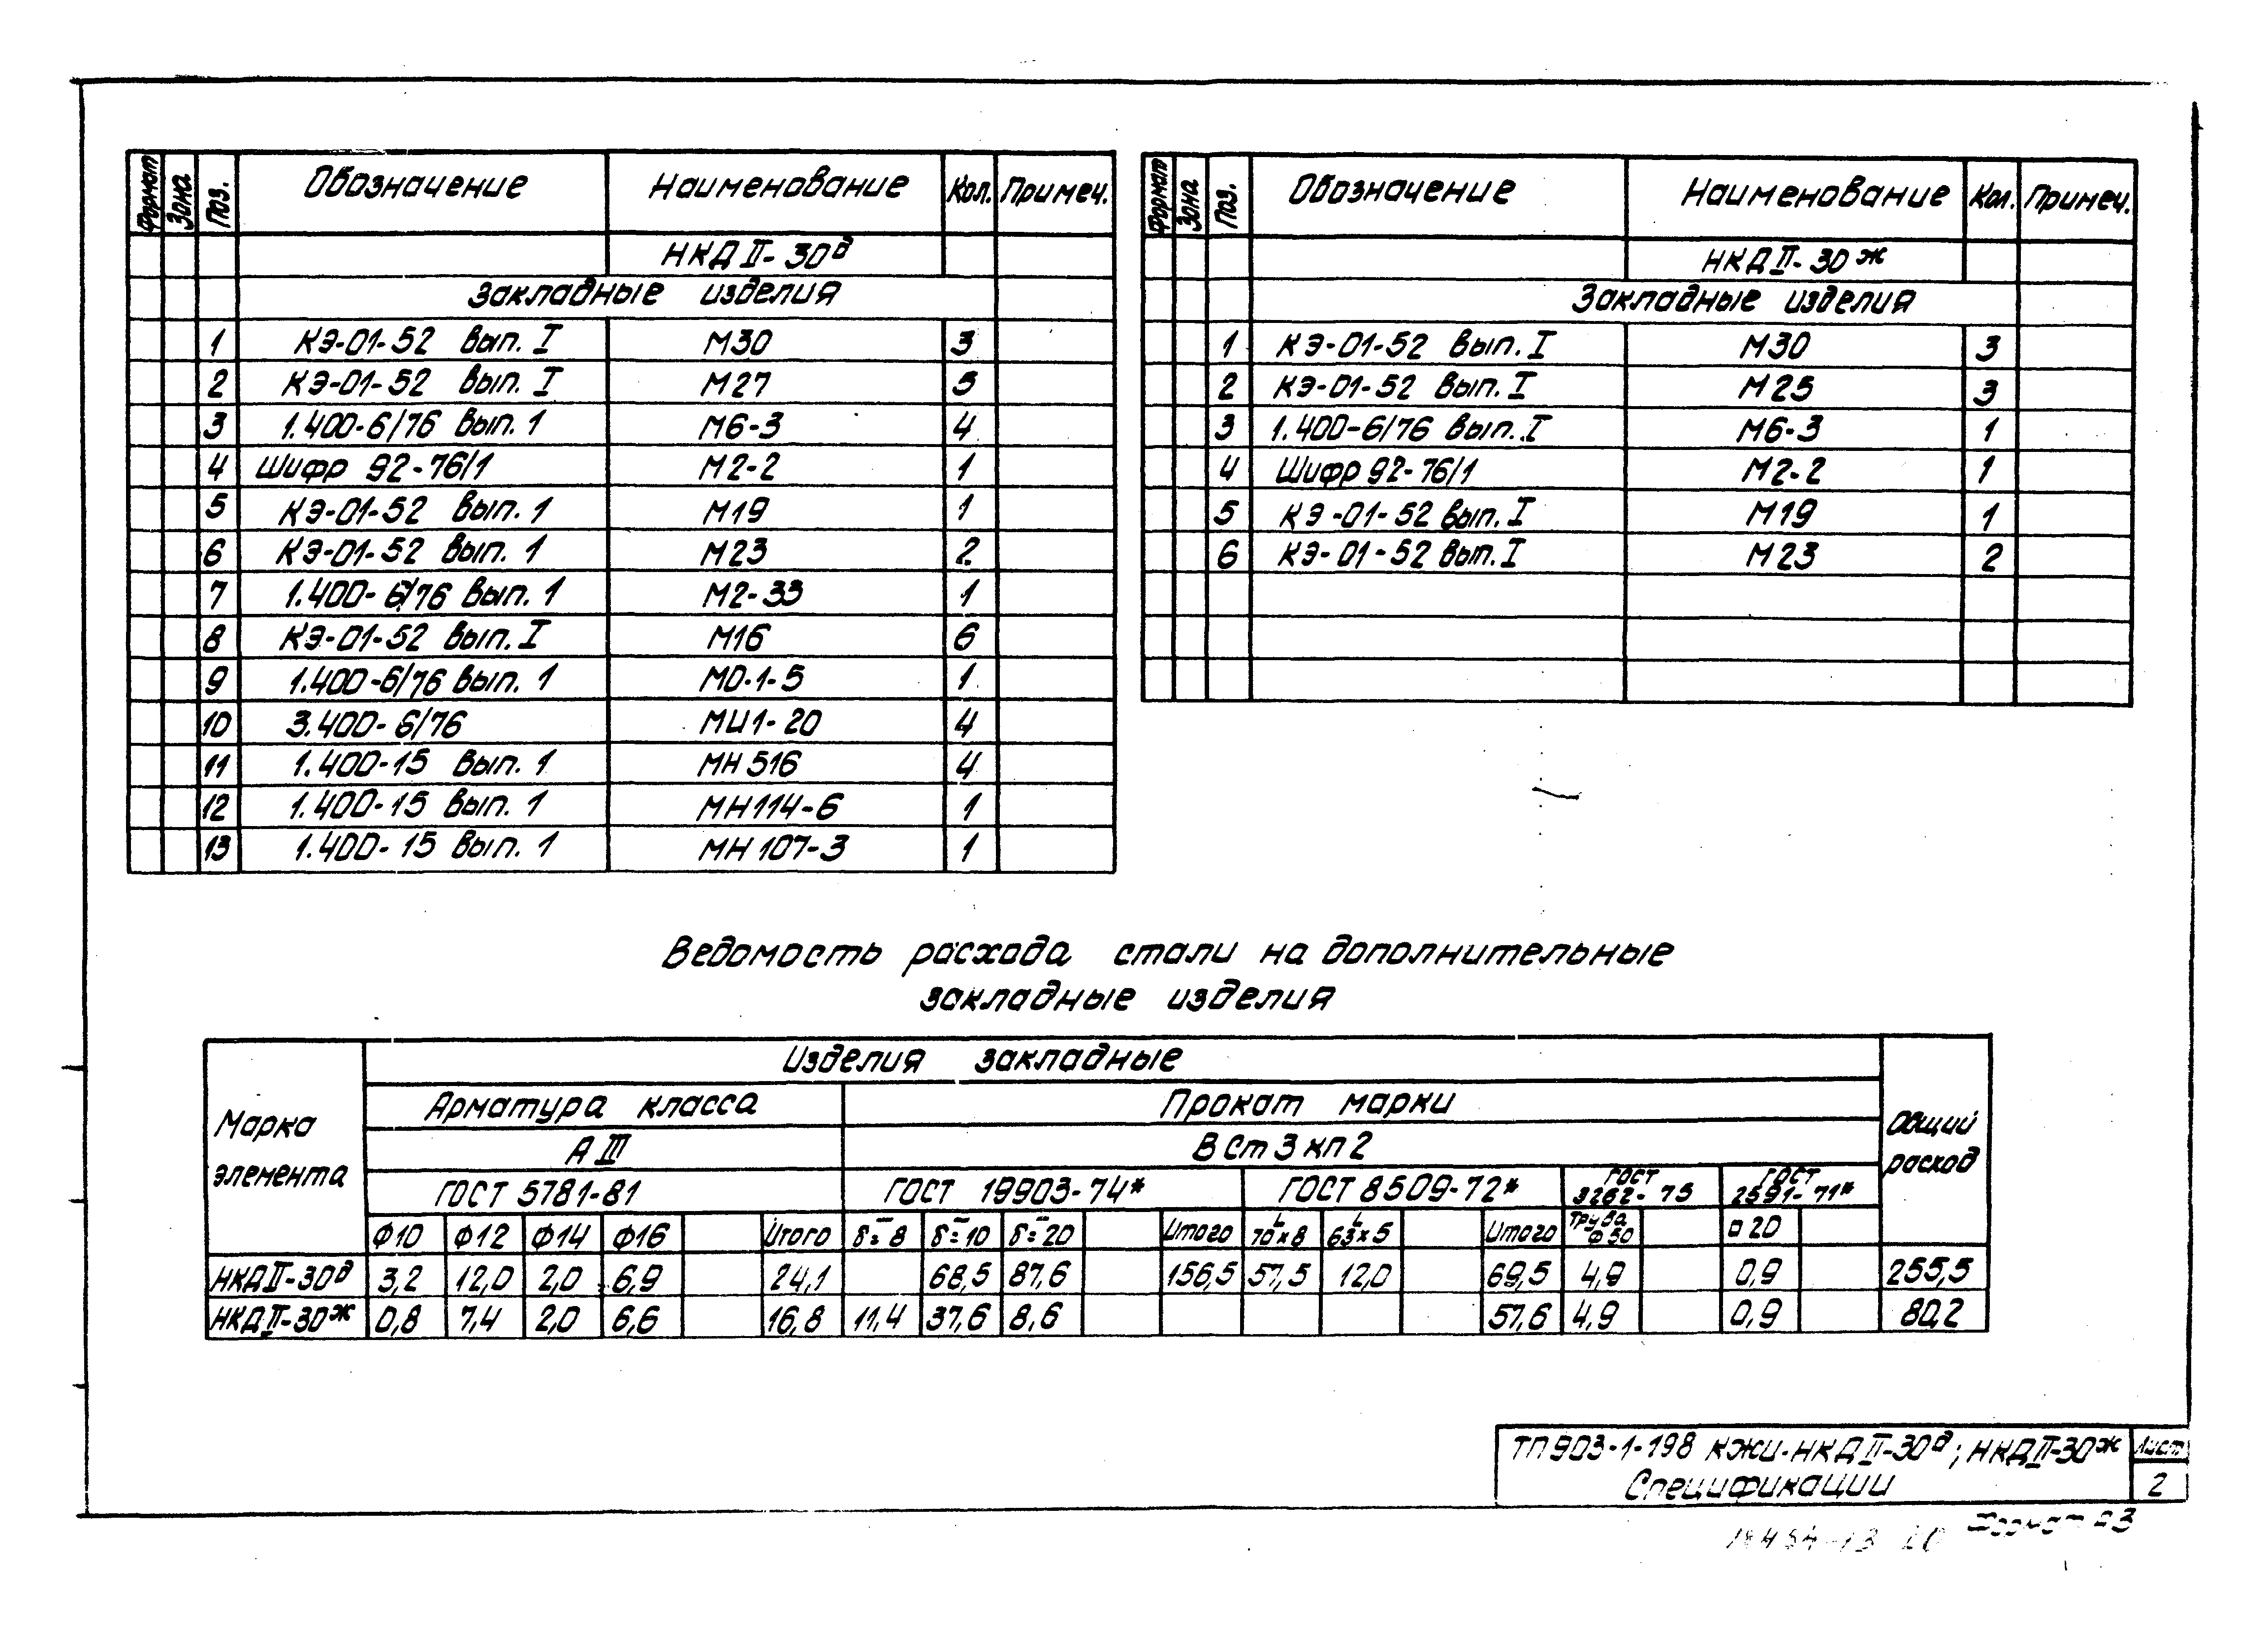 Формат Зона Поз. Обозначение Наименование Кол. Примеч.
НКДII-30д
Закладные изделия
1 КЭ-01-52 вып. I М30 3
2 КЭ-01-52 вып. I М27 3
3 1.400-6/76 вып. 1 М6-3 4
4 Шифр 92-76/1 М2-2 1
5 КЭ-01-52 вып. 1 М19 1
6 КЭ-01-52 вып. 1 М23 2
7 1.400-6/76 вып. 1 М2-33 1
8 КЭ-01-52 вып. I М16 6
9 1.400-6/76 вып. 1 М0-1-5 1
10 3.400-6/76 МИ1-20 4
11 1.400-15 вып. 1 МН516 4
12 1.400-15 вып. 1 МН114-6 1
13 1.400-15 вып. 1 МН107-3 1
Формат Зона Поз. Обозначение Наименование Кол. Примеч.
НКДII-30ж
Закладные изделия
1 КЭ-01-52 вып. I М30 3
2 КЭ-01-52 вып. I М25 3
3 1.400-6/76 вып. I М6-3 1
4 Шифр 92-76/1 М2-2 1
5 КЭ-01-52 вып. I М19 1
6 КЭ-01-52 вып. I М23 2
Ведомость расхода стали на дополнительные
закладные изделия
Марка элемента
Изделия закладные
Общий расход
Арматура класса Прокат марки
А III ВСт3кп2
ГОСТ 5781-81 ГОСТ 19903-74* ГОСТ 8509-72* ГОСТ 3262-75 ГОСТ 2591-71*
Ф10 Ф12 Ф14 Ф16 Итого δ=8 δ=10 δ=20 Итого L70×8 L63×5 Итого Труба Ф50 □20
НКДII-30д 3,2 12,0 2,0 6,9 24,1 68,5 87,6 156,5 57,5 12,0 69,5 4,9 0,9 255,5
НКДII-30ж 0,8 7,4 2,0 6,6 16,8 11,4 37,6 8,6 57,6 4,9 0,9 80,2
ТП903-1-198 КЖИ-НКДII-30д; НКДII-30ж
Спецификации
Лист
2
Формат А3